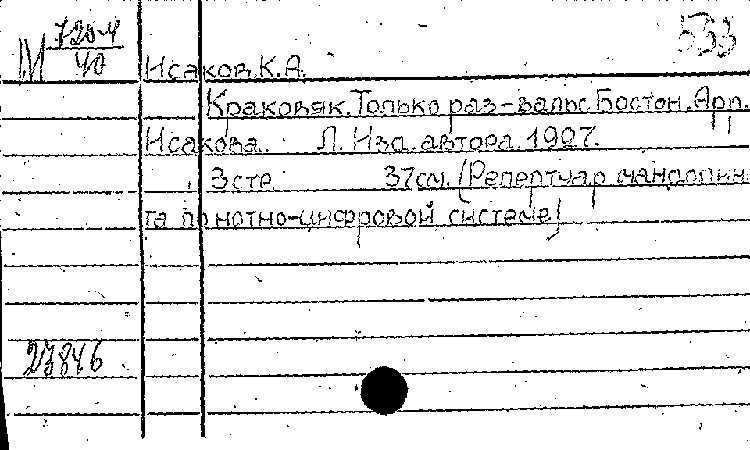 М 720-4 533
40
Исаков К.А.
Краковяк. Только раз-вальс Бостон. Арр.
Исакова. Л. Изд. автора 1927.
3 стр. 37см. (Репертуар мандолинис
та по нотно-цифровой системе)
27846